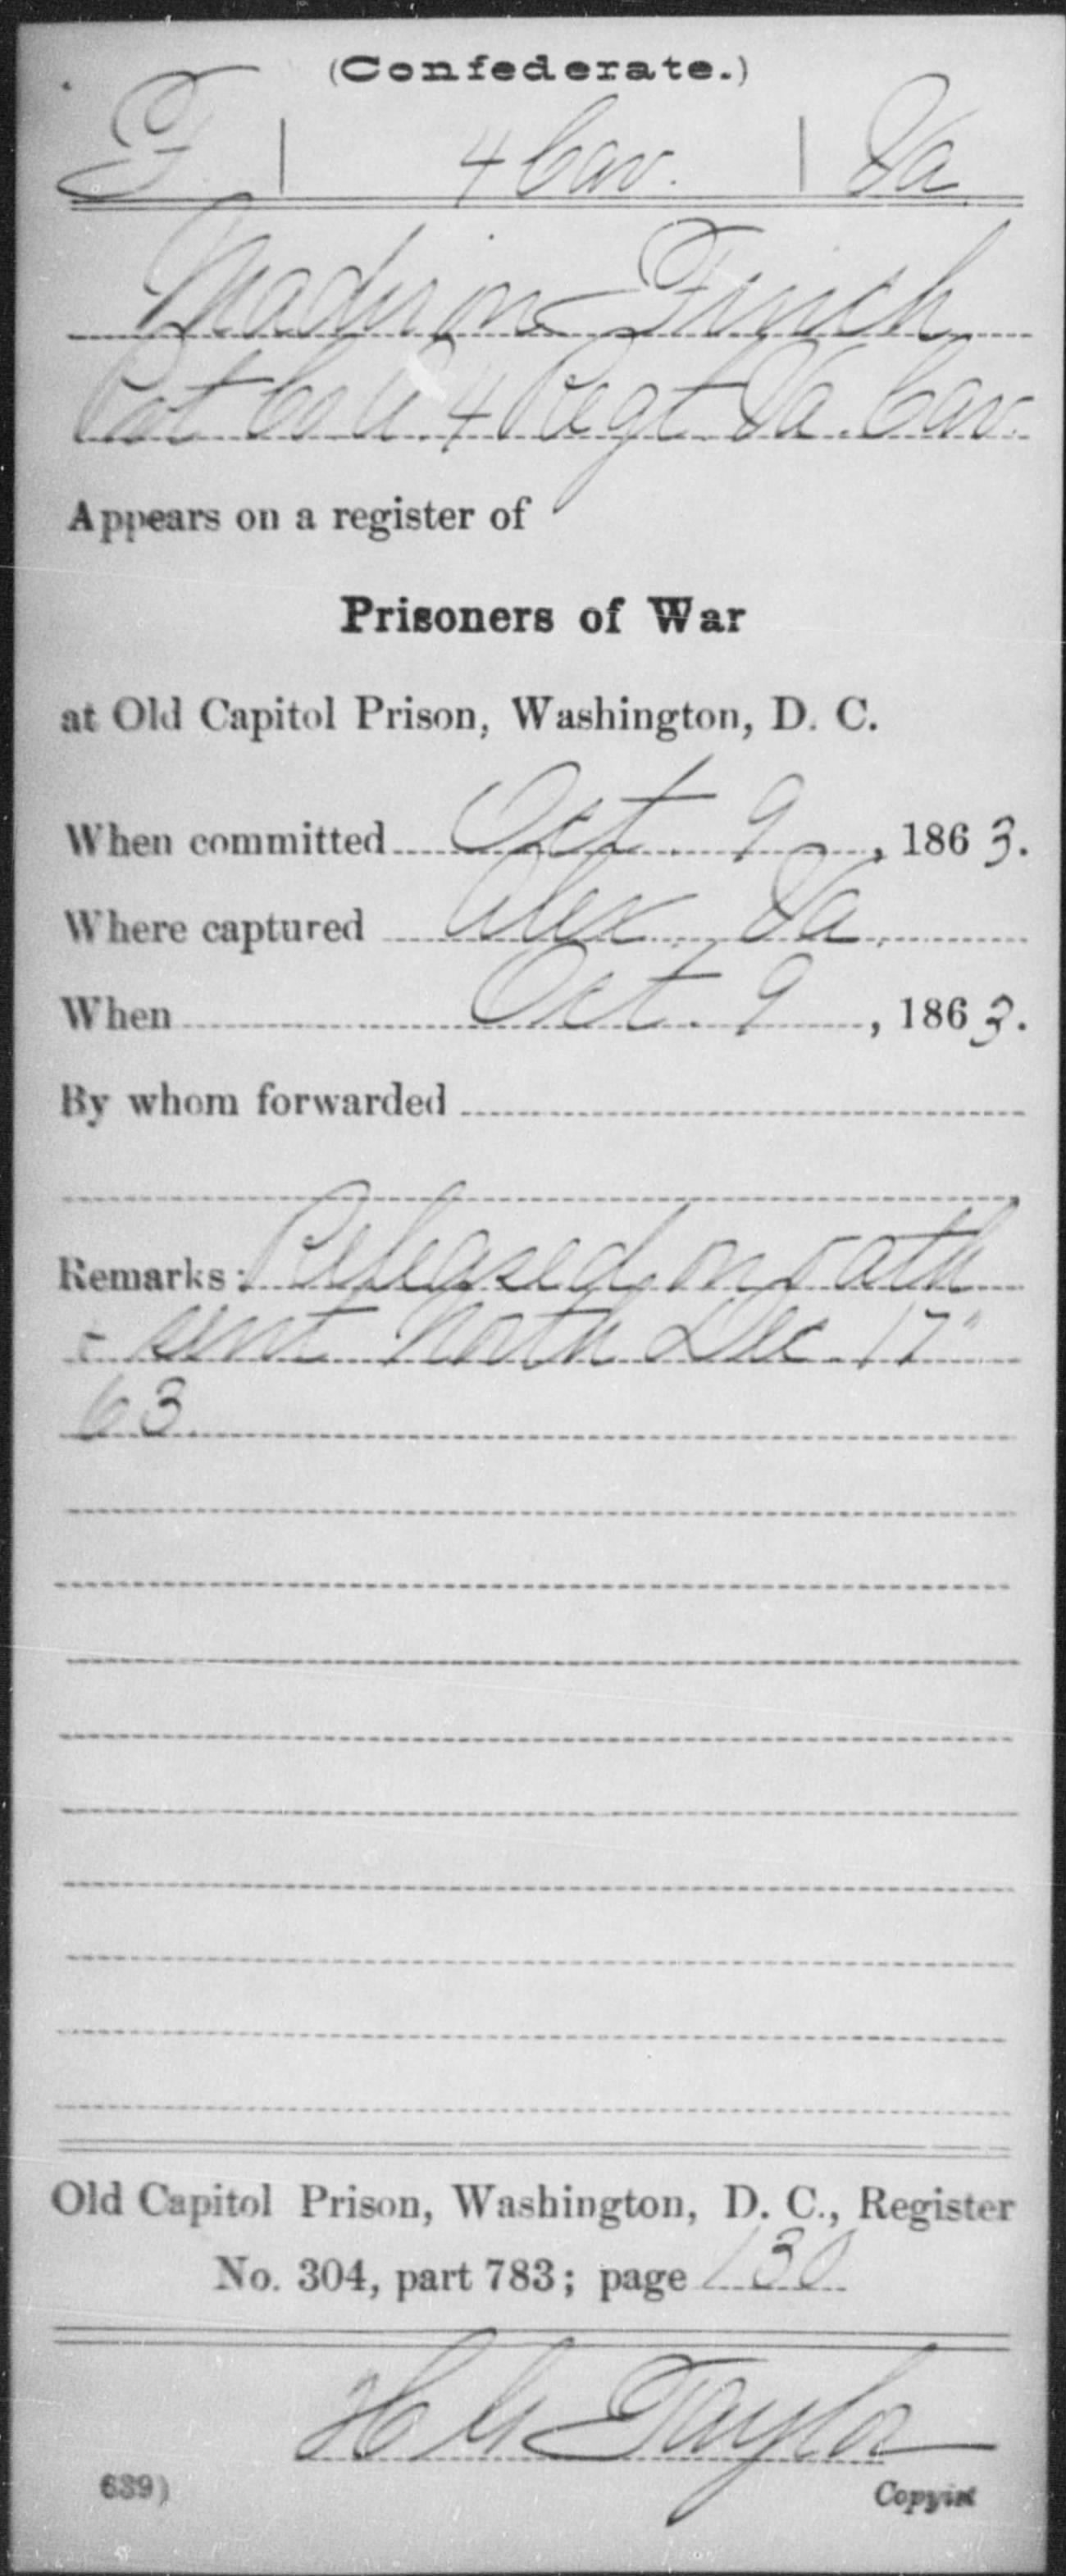 (Confederate.)
F | 4 Cav. | Va.
Madison Finch
Pvt Co A. 4 Regt Va. Cav.
Appears on a register of
Prisoners of War
at Old Capitol Prison, Washington, D. C.
When committed Oct. 9, 1863.
Where captured Alex, Va.
When Oct. 9, 1863.
By whom forwarded
Remarks: Released on oath
- sent North Dec 17"
63.
Old Capitol Prison, Washington, D. C., Register
No. 304, part 783; page 130
Taylor
639) Copyist